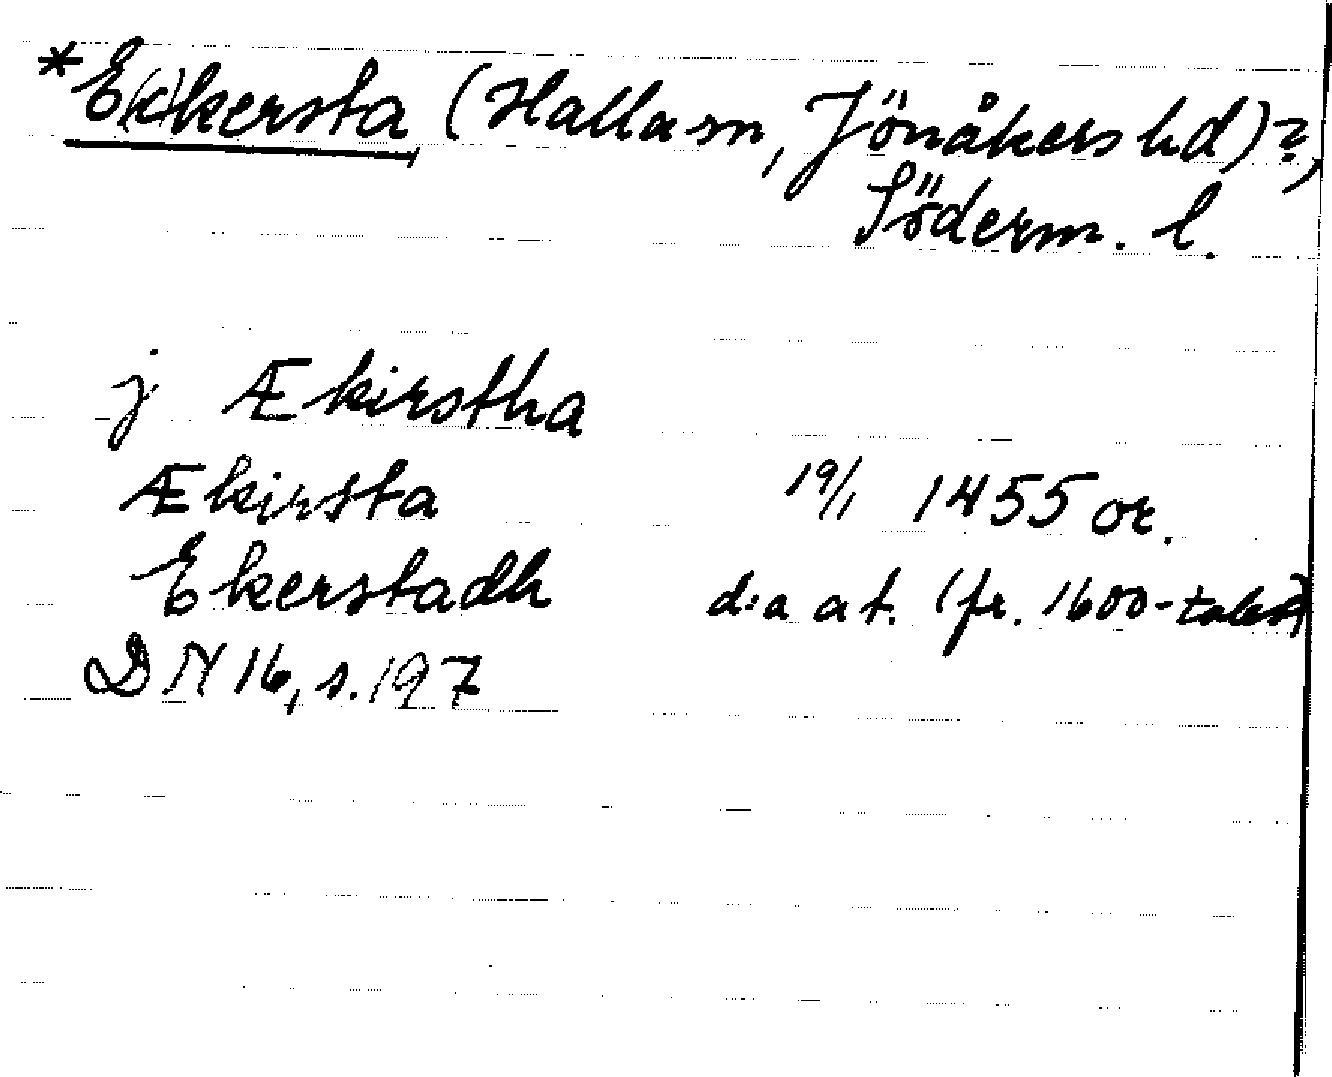 *E(c)kersta (Halla sn, Jönåkers hd)?,
Söderm. l.
j Ækirstha
Ækirsta 19/1 1455 or.
Ekerstadh d:a at. (fr. 1600-talet)
DN 16, s. 197